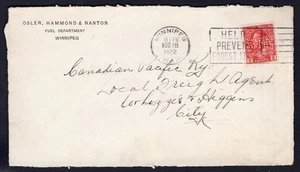 OSLER, HAMMOND & NANTON
FUEL DEPARTMENT
WINNIPEG
WINNIPEG
PM
AUG 18
1922
HELP
PREVENT
FOREST
Canadian Pacific Ry.
Local Agent
Higgins
City